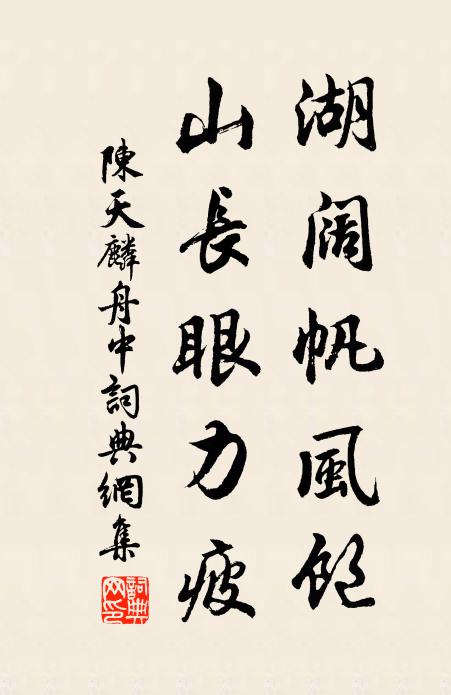 湖闊帆風飽
山長眼力疲
陳天麟舟中詞典網集
詞典网印